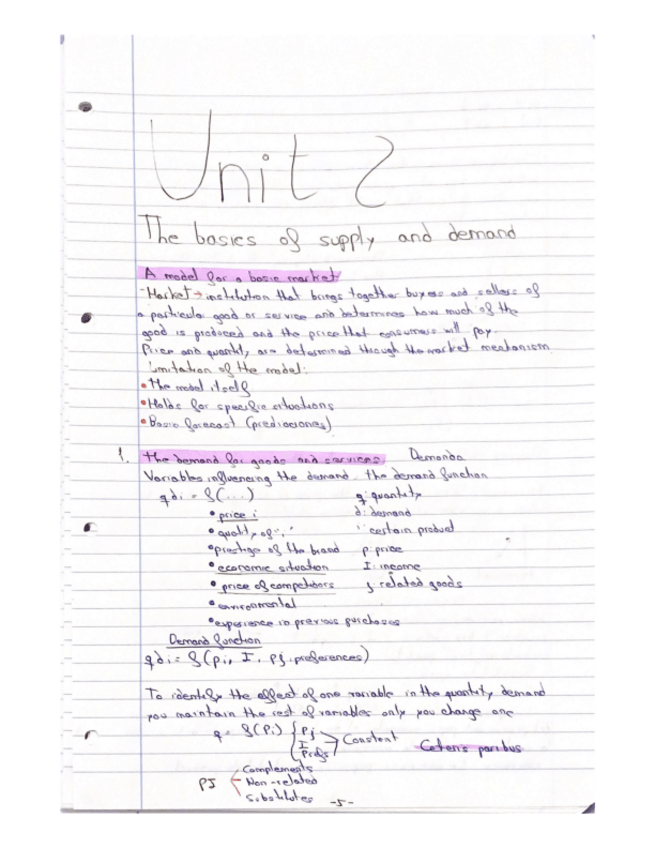 Unit 2
The basics of supply and demand
A model for a basic market
- Market → institution that brings together buyers and sellers of
a particular good or service and determines how much of the
good is produced and the price that consumers will pay.
Price and quantity are determined through the market mechanism
Limitation of the model:
• The model itself
• Holds for specific situations
• Basic forecast (predicciones)
1. The demand for goods and services. Demanda
Variables influencing the demand. the demand function
qdi = f(...) q: quantity
• price i d: demand
• quality of "i" i: certain product
• prestige of the brand p: price
• economic situation I: income
• price of competitors j: related goods
• environmental
• experience in previous purchases
Demand function
qdi = f(pi, I, pj, preferences)
To identify the effect of one variable in the quantity demand
you maintain the rest of variables only you change one
q = f(Pi) { Pj
I Constant Ceteris paribus
Prefs
Complements
PJ Non-related
Substitutes
-5-